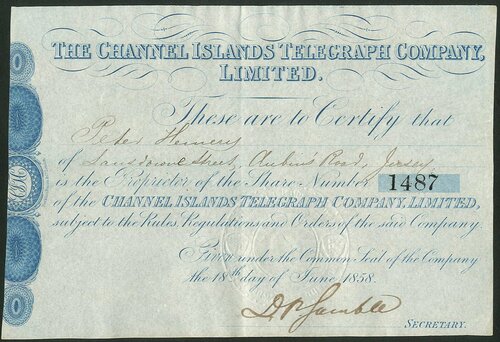 THE CHANNEL ISLANDS TELEGRAPH COMPANY,
LIMITED.
These are to Certify that
Peter Hemery
of Lansdowne Street, Aubin's Road, Jersey
is the Proprietor of the Share Number 1487
of the CHANNEL ISLANDS TELEGRAPH COMPANY, LIMITED,
subject to the Rules, Regulations and Orders of the said Company.
Given under the Common Seal of the Company
the 18th day of June 1858.
D P Gamble
SECRETARY.